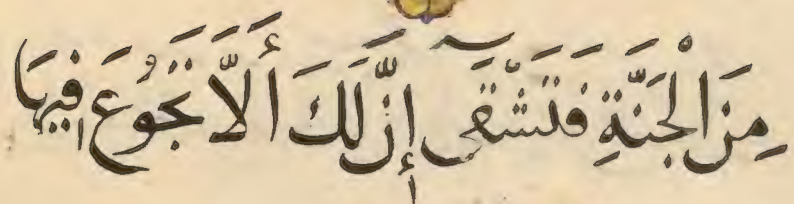 مِنَ الْجَنَّةِ فَتَشْقَىٰ إِنَّ لَكَ أَلَّا تَجُوعَ فِيهَا